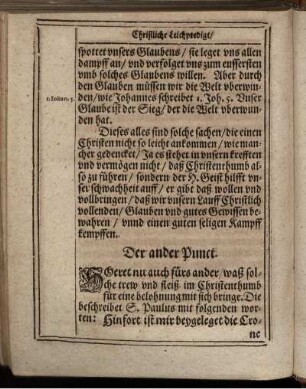 Christliche Leichpredigt/
spottet vnsers Glaubens/ sie leget vns allen
dampff an/ vnd verfolget vns zum eussersten
vmb solches Glaubens willen. Aber durch
den Glauben müssen wir die Welt vberwun-
den/ wie Johannes schreibet 1. Joh. 5. Vnser
Glaube ist der Sieg/ der die Welt vberwun-
den hat.
1. Johan. 5.
Dieses alles sind solche sachen/ die einen
Christen nicht so leicht ankommen/ wie man-
cher gedencket/ Ja es stehet in vnsern krefften
vnd vermögen nicht/ daß Christenthumb al-
so zu führen/ sondern der H. Geist hilfft vn-
ser schwachheit auff/ er gibt daß wollen vnd
vollbringen/ daß wir vnsern Lauff Christlich
vollenden/ Glauben vnd gutes Gewissen be-
wahren/ vnnd einen guten seligen Kampff
kempffen.
Der ander Punct.
HOeret nu auch fürs ander/ waß sol-
che trew vnd fleiß im Christenthumb
für eine belohnung mit sich bringe. Die
beschreibet S. Paulus mit folgenden wor-
ten: Hinfort ist mir beygeleget die Cro-
ne